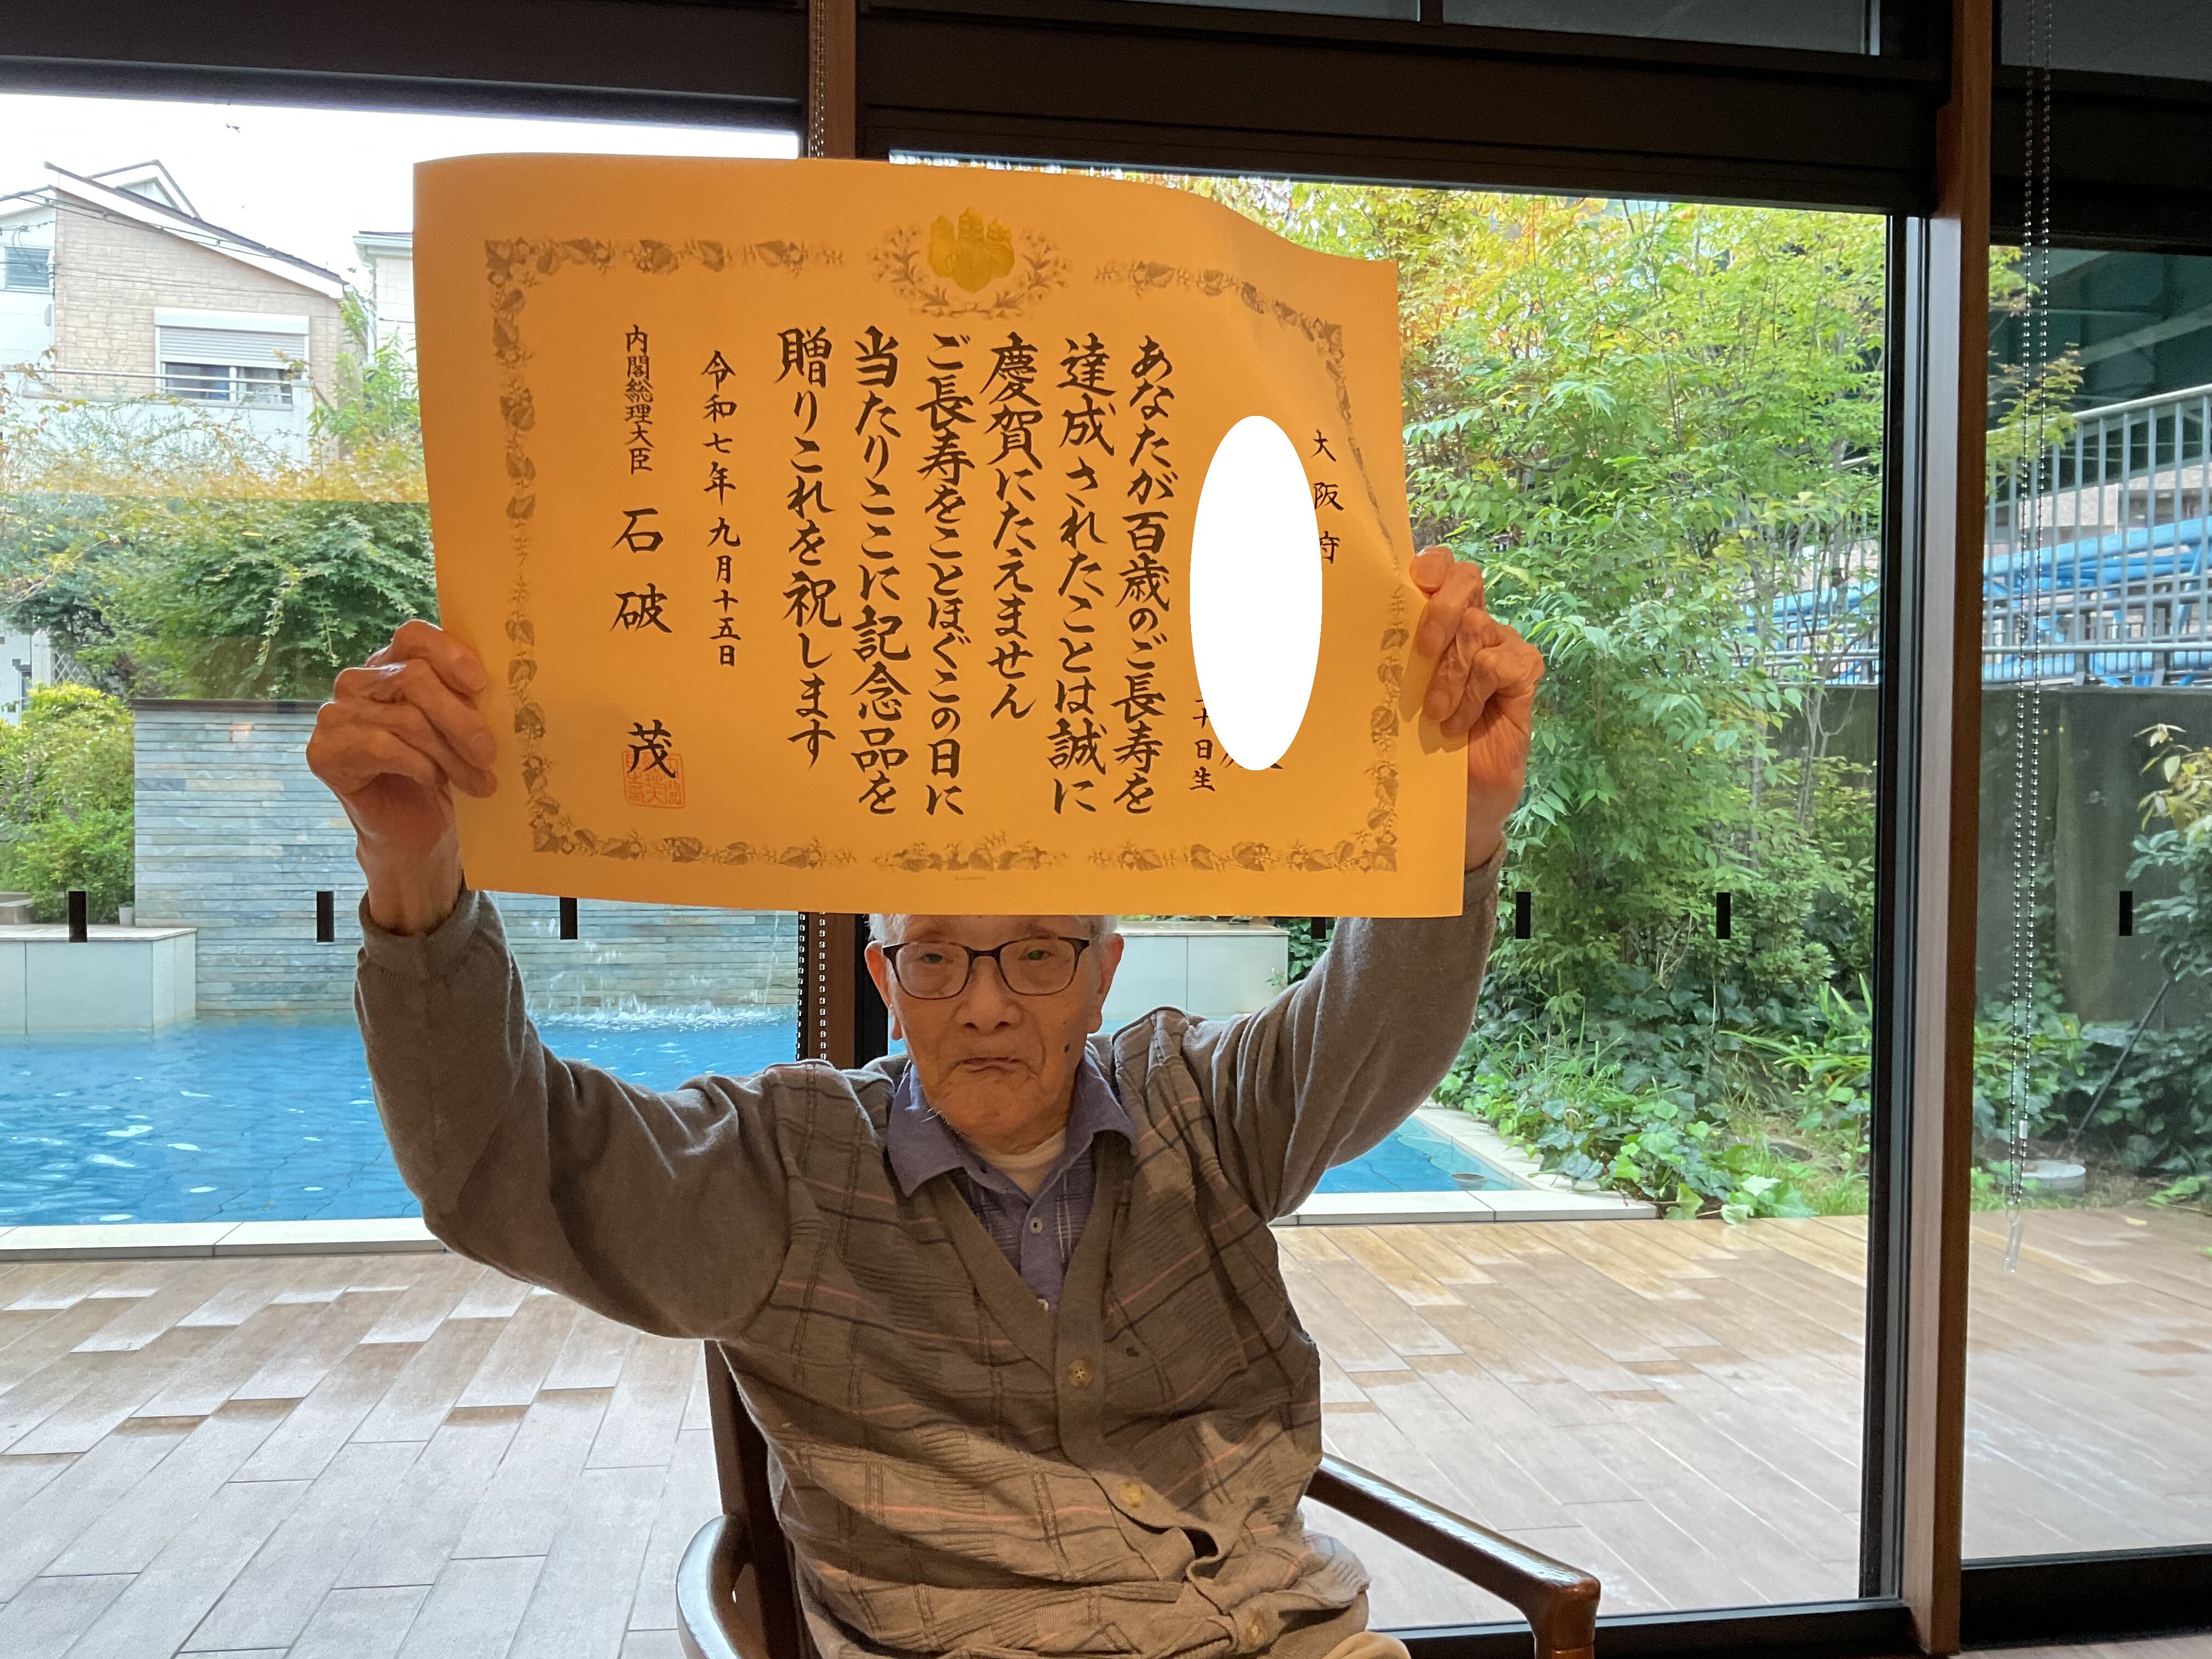 大阪府
十日生
あなたが百歳のご長寿を
達成されたことは誠に
慶賀にたえません
ご長寿をことほぐこの日に
当たりここに記念品を
贈りこれを祝します
令和七年九月十五日
内閣総理大臣 石破 茂